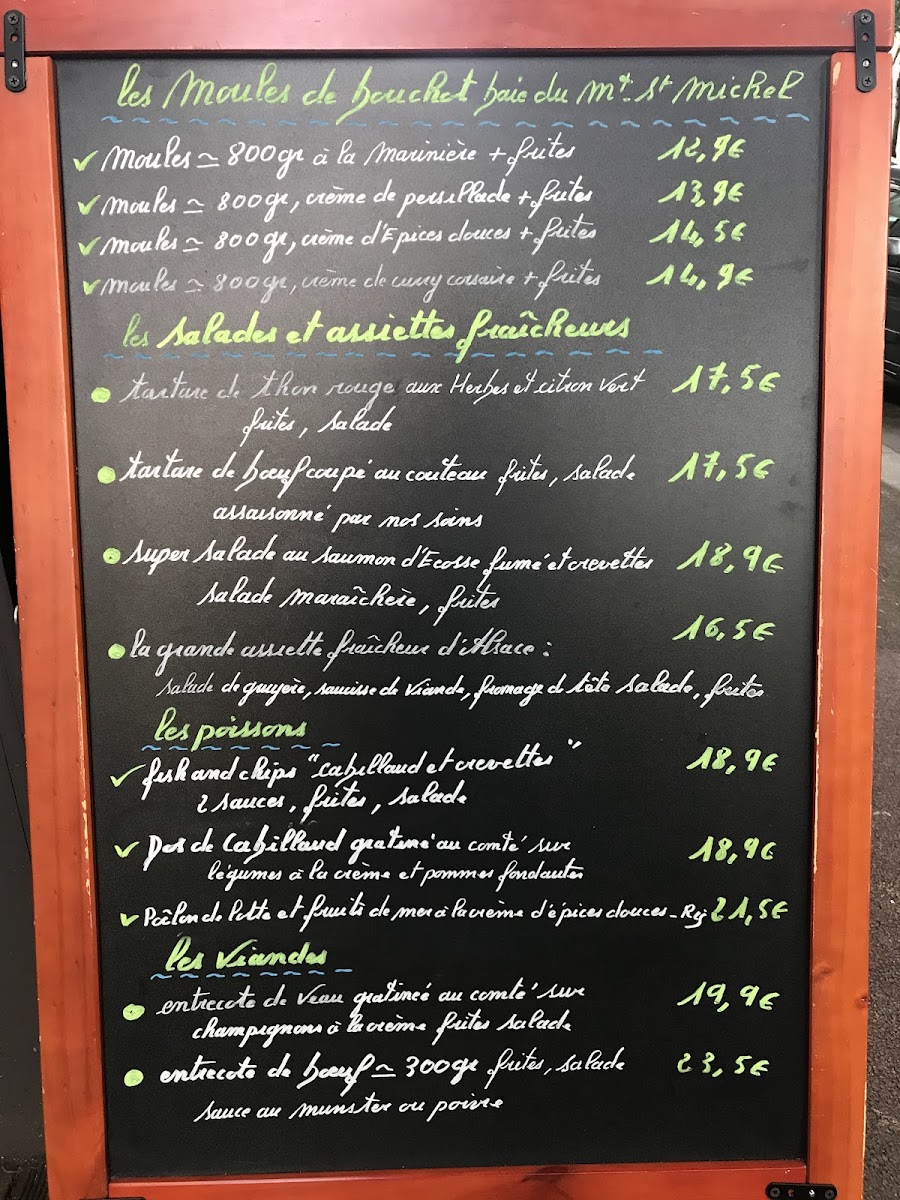 les Moules de bouchot baie du Mt-St Michel
Moules ≃ 800gr à la Marinière + frites 12,9€
moules ≃ 800gr, crème de persillade + frites 13,9€
moules ≃ 800gr, crème d'Epices douces + frites 14,5€
moules ≃ 800gr, crème de curry corsaire + frites 14,9€
les salades et assiettes fraîcheurs
tartare de thon rouge aux Herbes et citron vert 17,5€
frites, salade
tartare de bœuf coupé au couteau frites, salade 17,5€
assaisonné par nos soins
super salade au saumon d'Ecosse fumé et crevettes 18,9€
salade maraîchère, frites
la grande assiette fraîcheur d'Alsace : 16,5€
salade de gruyère, saucisse de viande, fromage d tête salade, frites
les poissons
fish and chips "cabillaud et crevettes" 18,9€
2 sauces, frites, salade
Dos de Cabillaud gratiné au comté sur 18,9€
légumes à la crème et pommes fondantes
Poêlon de lotte et fruits de mer à la crème d'épices douces - Riz 21,5€
les Viandes
entrecote de Veau gratinée au comté sur 19,9€
champignons à la crème frites salade
entrecote de bœuf ≃ 300gr frites, salade 23,5€
sauce au munster ou poivre